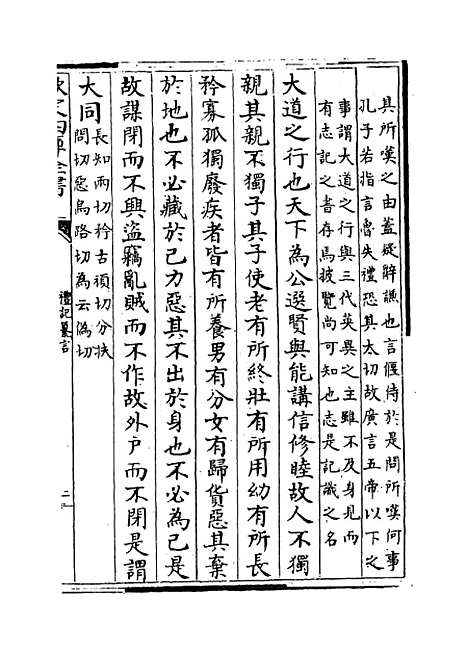 具所嘆之由蓋疑辭謙也言偃侍於是問所嘆何事
孔子若指言魯失禮恐其太切故廣言五帝以下之
事謂大道之行與三代英異之主雖不及身見而
有志記之書存焉披覽尚可知也志是記識之名
大道之行也天下為公選賢與能講信修睦故人不獨
親其親不獨子其子使老有所終壯有所用幼有所長
矜寡孤獨廢疾者皆有所養男有分女有歸貨惡其棄
於地也不必藏於己力惡其不出於身也不必為己是
故謀閉而不興盜竊亂賊而不作故外户而不閉是謂
大同
長知兩切矜古頑切分扶
問切惡烏路切為云偽切
欽定四庫全書
禮記纂言